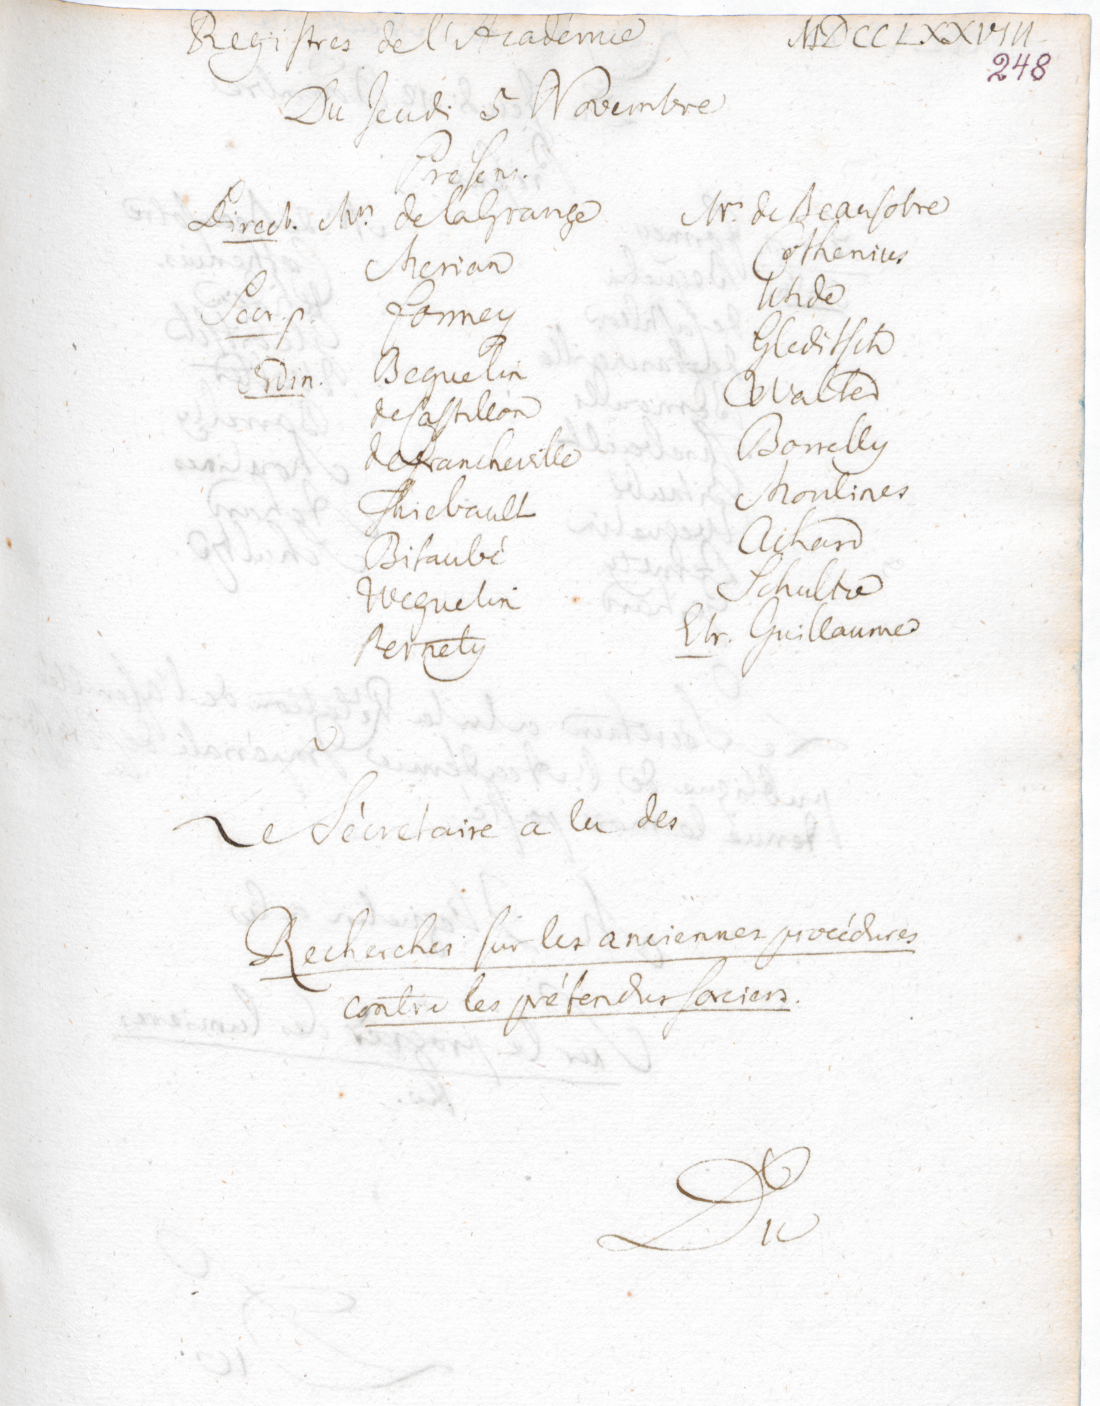 Registres de l'Académie MDCCLXXVIII
248
Du Jeudi 5 Novembre
Presens.
Direct. Mrs. de la Grange
Merian
Secr. p. Formey
Ordin. Beguelin
de Castillon
de Francheville
Thiebault
Bitaubé
Weguelin
Pernety
Mrs. de Beausobre
Cothenius
Uhde
Gleditsch
Walter
Borrelly
Moulines
Achard
Schultze
Etr. Guillaume
Le Sécrétaire a lu des
Recherches sur les anciennes procédures
contre les prétendus sorciers.
Du